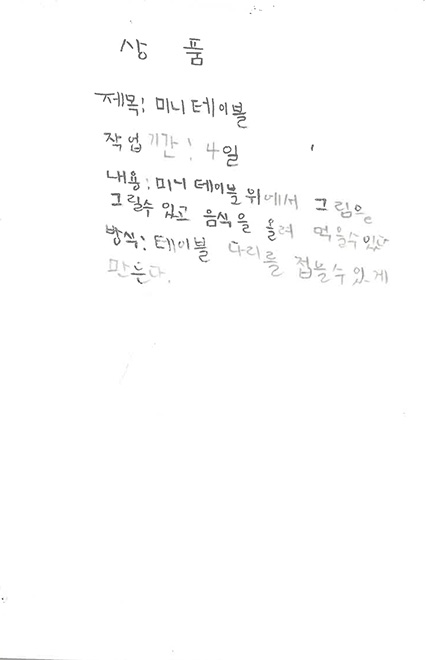 상 품
제목: 미니 테이블
작업기간: 4일
내용: 미니 테이블 위에서 그림을
그릴수 있고 음식을 올려 먹을수있다
방식: 테이블 다리를 접을수있게
만든다.